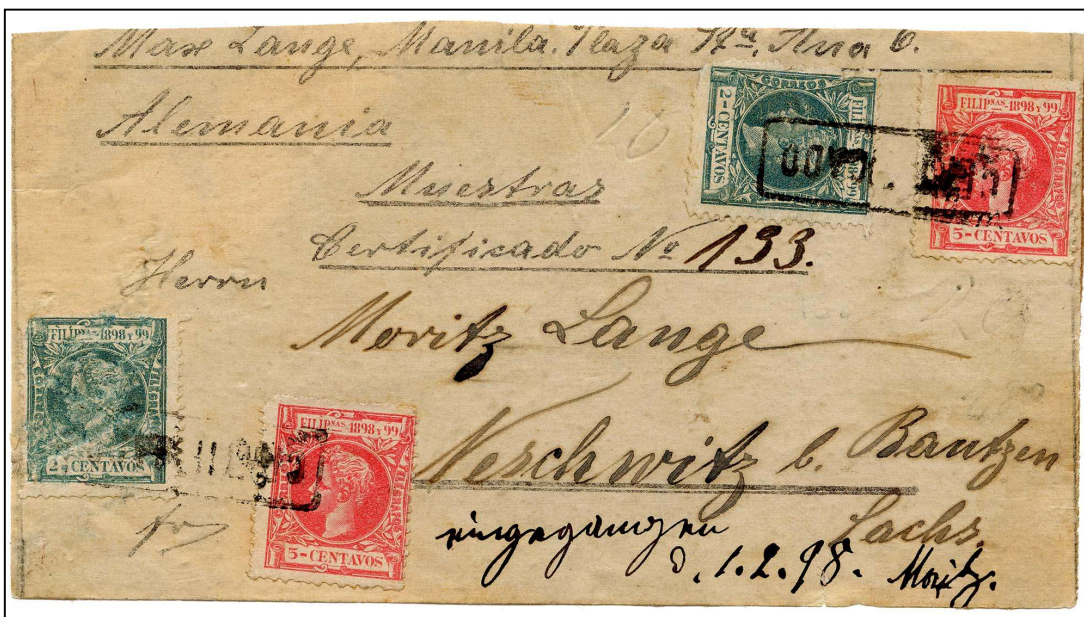 Max Lange, Manila. Plaza Sta. Ana 6.
Alemania
Muestras
Certificado No 133.
Herrn
Moritz Lange
Neschwitz b. Bautzen
Sachs.
eingegangen
d. 1.2.98. Moritz.
CORREOS
FILIPNAS 1898 Y 99
2-CENTAVOS
FILIPNAS-1898 Y 99
TELEGRAFOS
5-CENTAVOS
FILIPNAS-1898 Y 99
TELEGRAFOS
2-CENTAVOS
FILIPNAS-1898 Y 99
TELEGRAFOS
5-CENTAVOS